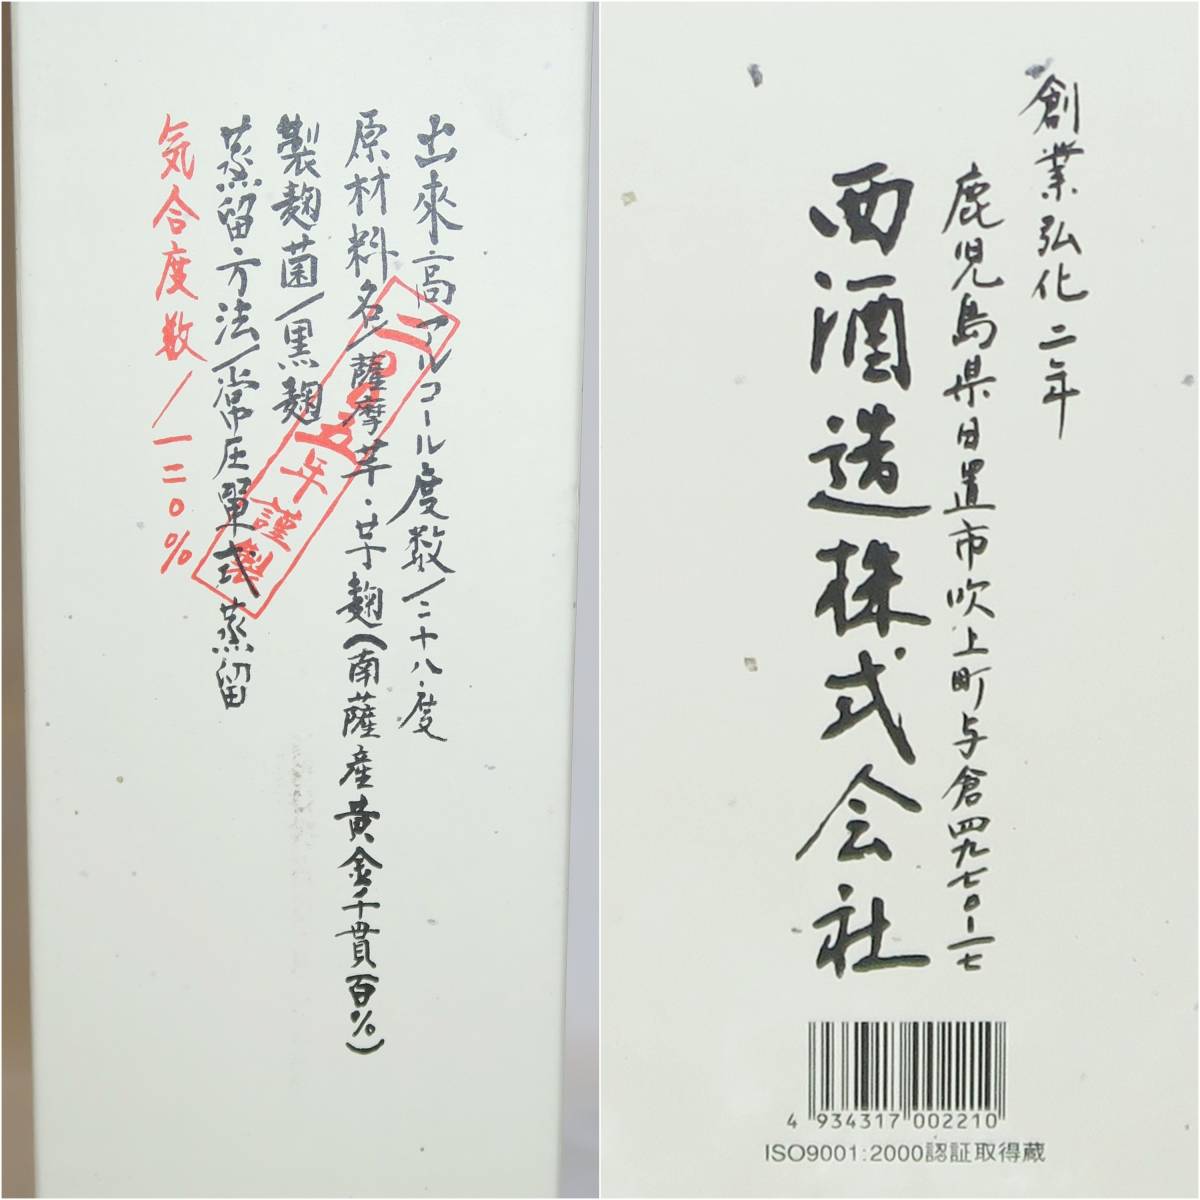 出來高アルコール度数/二十八度
原材料名/薩摩芋・芋麹(南薩産黄金千貫百%)
製麹菌/黒麹
蒸留方法/常圧單式蒸留
気合度数/一二〇%
二〇〇五年謹製
創業弘化二年
鹿児島県日置市吹上町与倉四九七〇-一七
西酒造株式会社
4 934317 002210
ISO9001:2000認証取得蔵